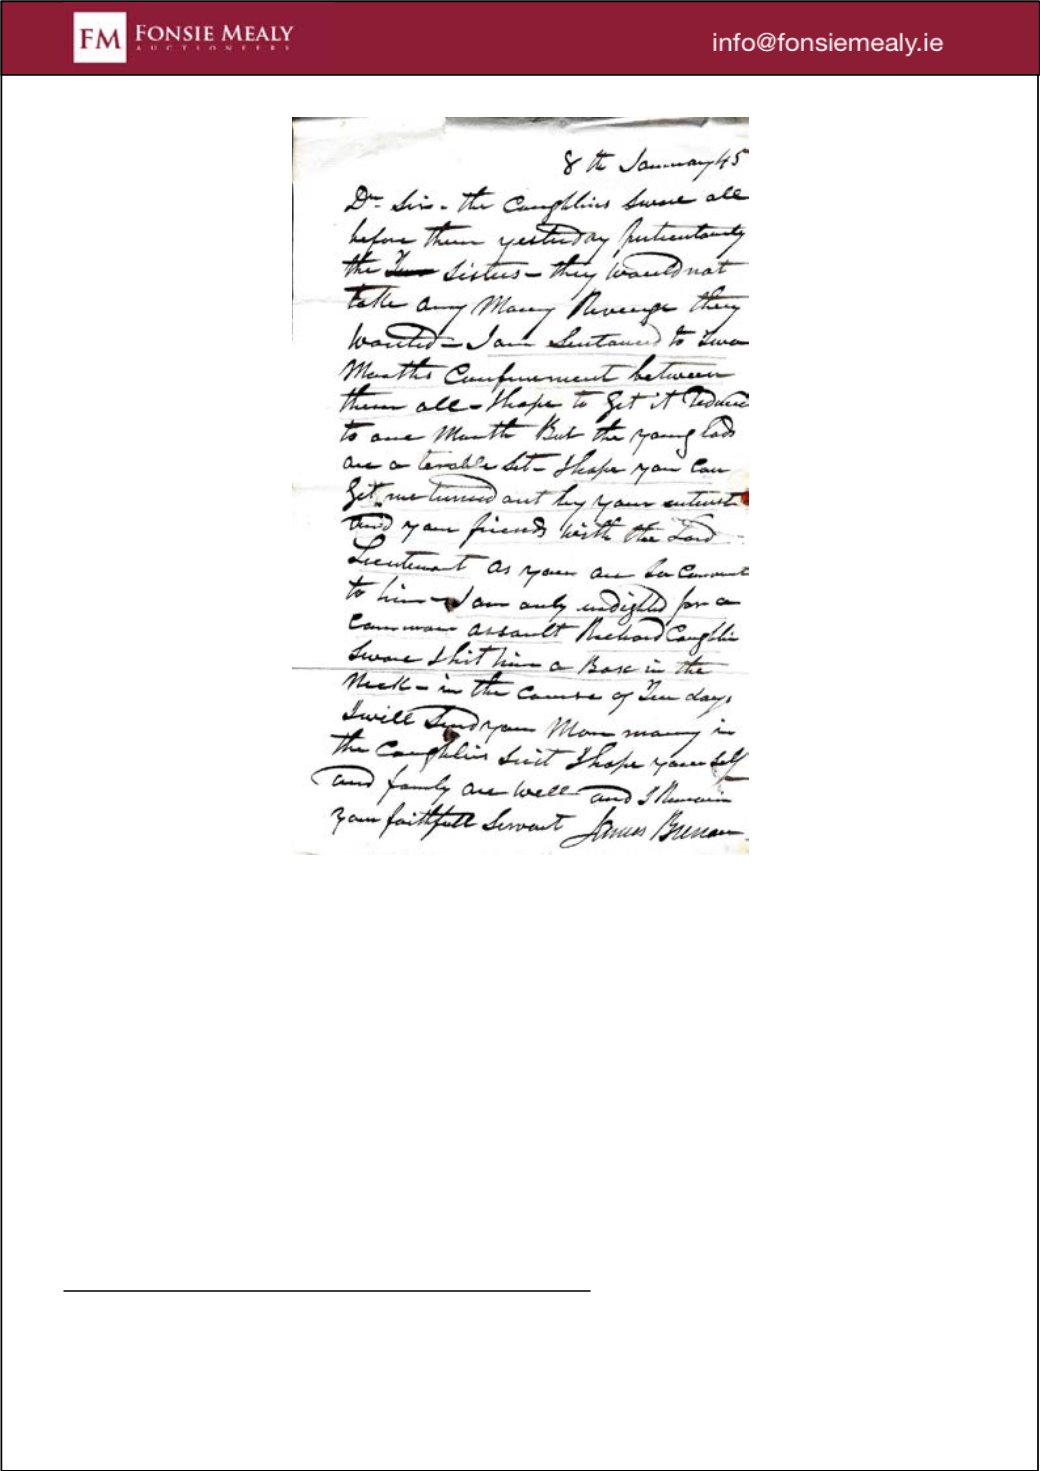 FM FONSIE MEALY
AUCTIONEERS
info@fonsiemealy.ie
8th January 45
Dr Sir - the Caughlins Swore all
before them yesterday perticularly
the Two Sisters - they would not
take any Money Revenge they
wanted - I am Sentanced to two
Months Confinement between
them all - I hope to Get it Reduced
to one Month But the young lads
are a terable Set - I hope you Can
Get me turned out by your intrest
and your friends with the Lord
Lieutenant as you are
to him - I am only indighted for a
common assault Richard Caughlin
Swore I hit him a Box in the
Neck - in the course of Ten days
I will Send you More money in
the Caughlins Suit I hope your Self
and family are well and I Remain
your faithfull Servant James Brenan